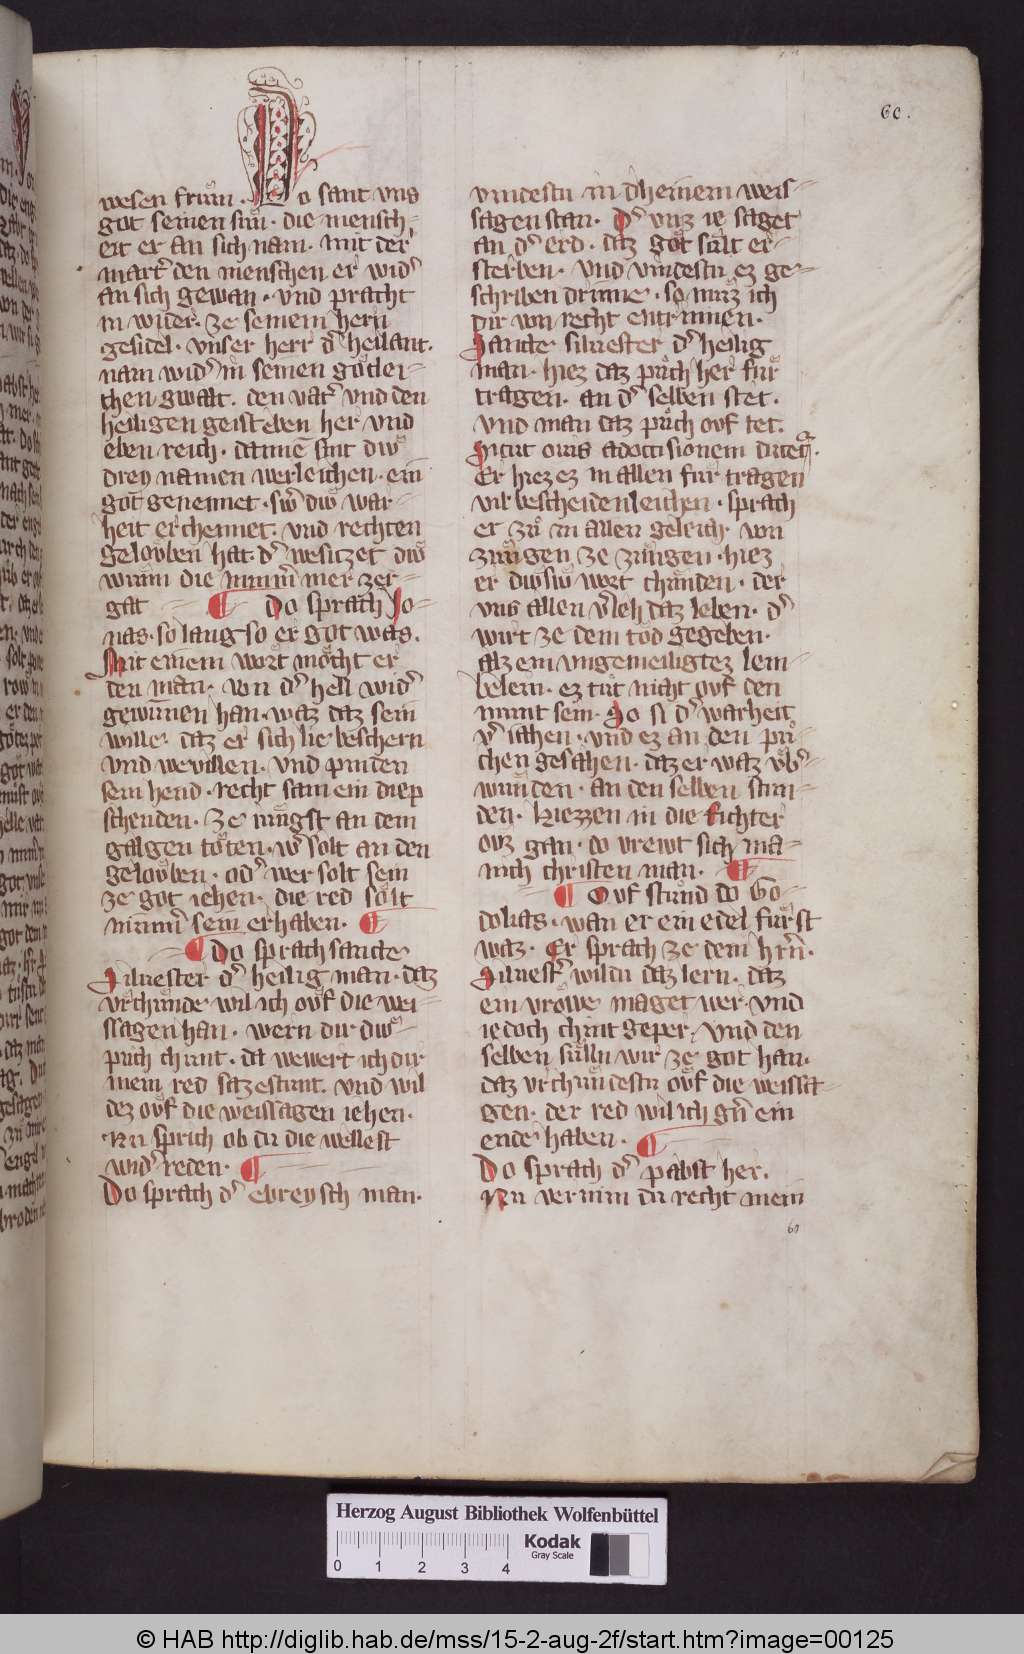 60.
wesen frum. Do sant uns
got seinen sun. die mensch-
eit er an sich nam. mit der
marter den menschen er wider
an sich gewan. und pracht
in wider. ze seinem hern
gesidel. unser herr der heilant.
nam wider in seinen götlei-
chen gwalt. den vater und den
heiligen geist eben her und
eben reich. dannen sint diw
drey namen werleichen. ein
got genennet. swer diw war-
heit erchennet. und rechten
gelouben hat. der wesitzet diw
wunn die nimmer mer zer-
gat Do sprach Jo-
nas. so lang so er got was.
Mit einem wort möcht er
den man. von der hell wider
gewinnen han. waz daz sein
wille. daz er sich lie beschern
und wevillen. und pinden
sein hend. recht sam ein diep
schenden. ze jungst an dem
galgen töten. wer solt an den
gelouben. oder wer solt sein
ze got iehen. die red solt
nimmer sein erhaben.
Do sprach sancte
Silvester der heilig man. daz
urchunde wil ich ouf die wei-
ssagen han. wern dir diw
puch chunt. da wewert ich dir
mein red sa zestunt. und wil
dez ouf die weissagen iehen.
Nu sprich ob du die wellest
wider reden.
Do sprach der ebreysch man.
vindestu in dheinem weis-
sagen stan. Der unz ie saget
an der erd. daz got sult er-
sterben. und vindestu ez ge-
schriben drinne. so muz ich
dir von recht entrinnen.
Sancte silvester der heilig
man. hiez daz puch her fur
tragen. an der selben stet.
und man daz puch ouf tet.
Sicut ovis ad occisionem ducetur.
Er hiez ez in allen fur tragen
vil bescheidenleichen. sprach
er zu in allen geleich. von
zungen ze zungen. hiez
er disiw wort chunden. der
uns allen verleh daz leben. der
wirt ze dem tod gegeben.
alz ein ungemeiligtez lem-
belein. ez tut nicht ouf den
munt sein. Do si der warheit
ver iahen. und ez an den pu-
chen gesahen. daz er waz uber-
wunden. an den selben stun-
den. hiezzen in die richter
ouz gan. do vrewt sich ma-
nich christen man.
Ouf stund do Go-
dolias. wan er ein edel furst
waz. Er sprach ze dem herrn.
Silvester wildu daz lern. daz
ein vrowe maget wer. und
iedoch chint geper. und den
selben sulln wir ze got han.
daz urchundestu ouf die weissa-
gen. der red wil ich gern ein
ende haben.
Do sprach der pabst her.
Nu vernim du recht mein
60
Herzog August Bibliothek Wolfenbüttel
0 1 2 3 4
Kodak
Gray Scale
© HAB http://diglib.hab.de/mss/15-2-aug-2f/start.htm?image=00125